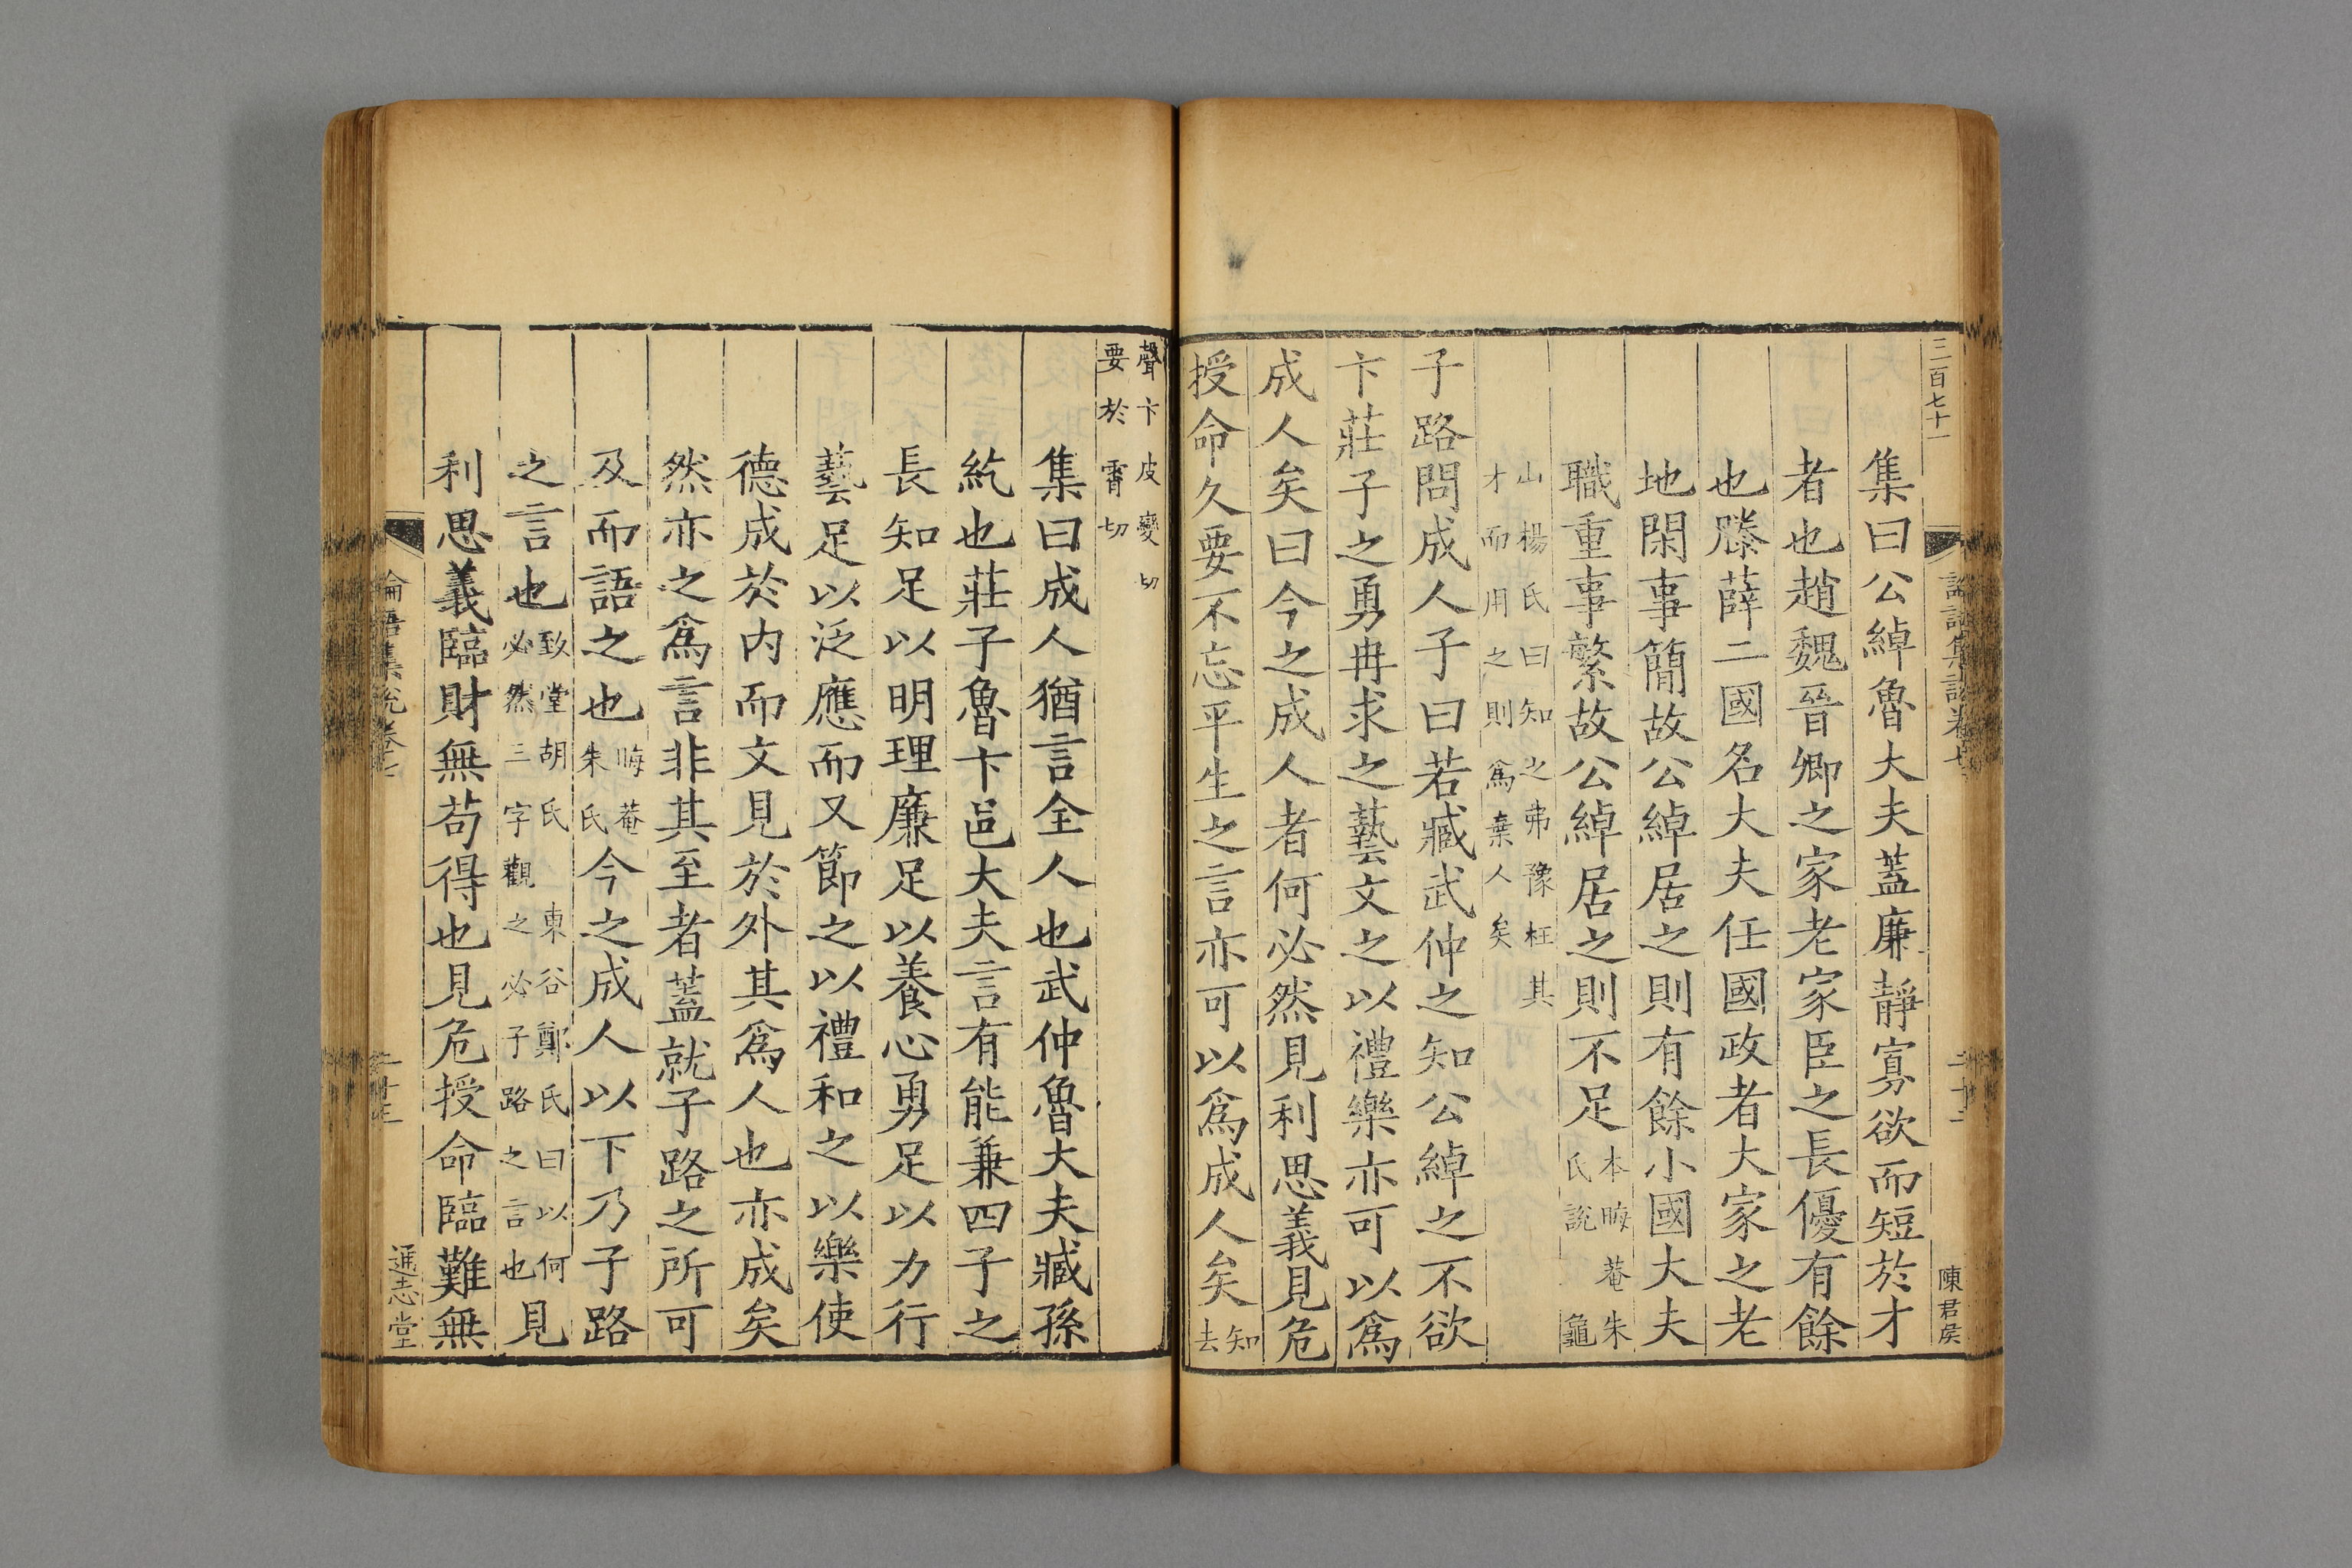 三百七十一
論語集説卷七
二十二
陳君侯
集曰公綽魯大夫蓋廉靜寡欲而短於才
者也趙魏晉卿之家老家臣之長優有餘
也滕薛二國名大夫任國政者大家之老
地閑事簡故公綽居之則有餘小國大夫
職重事繁故公綽居之則不足本晦菴朱氏說龜
山楊氏曰知之弗豫枉其才而用之則爲棄人矣
子路問成人子曰若臧武仲之知公綽之不欲
卞莊子之勇冉求之藝文之以禮樂亦可以爲
成人矣曰今之成人者何必然見利思義見危
授命久要不忘平生之言亦可以爲成人矣知去
聲卞皮變切要於霄切
集曰成人猶言全人也武仲魯大夫臧孫
紇也莊子魯卞邑大夫言有能兼四子之
長知足以明理廉足以養心勇足以力行
藝足以泛應而又節之以禮和之以樂使
德成於内而文見於外其爲人也亦成矣
然亦之爲言非其至者蓋就子路之所可
及而語之也晦菴朱氏今之成人以下乃子路
之言也致堂胡氏東谷鄭氏曰以何必然三字觀之必子路之言也見
利思義臨財無苟得也見危授命臨難無
論語集說卷七
二十三
通志堂